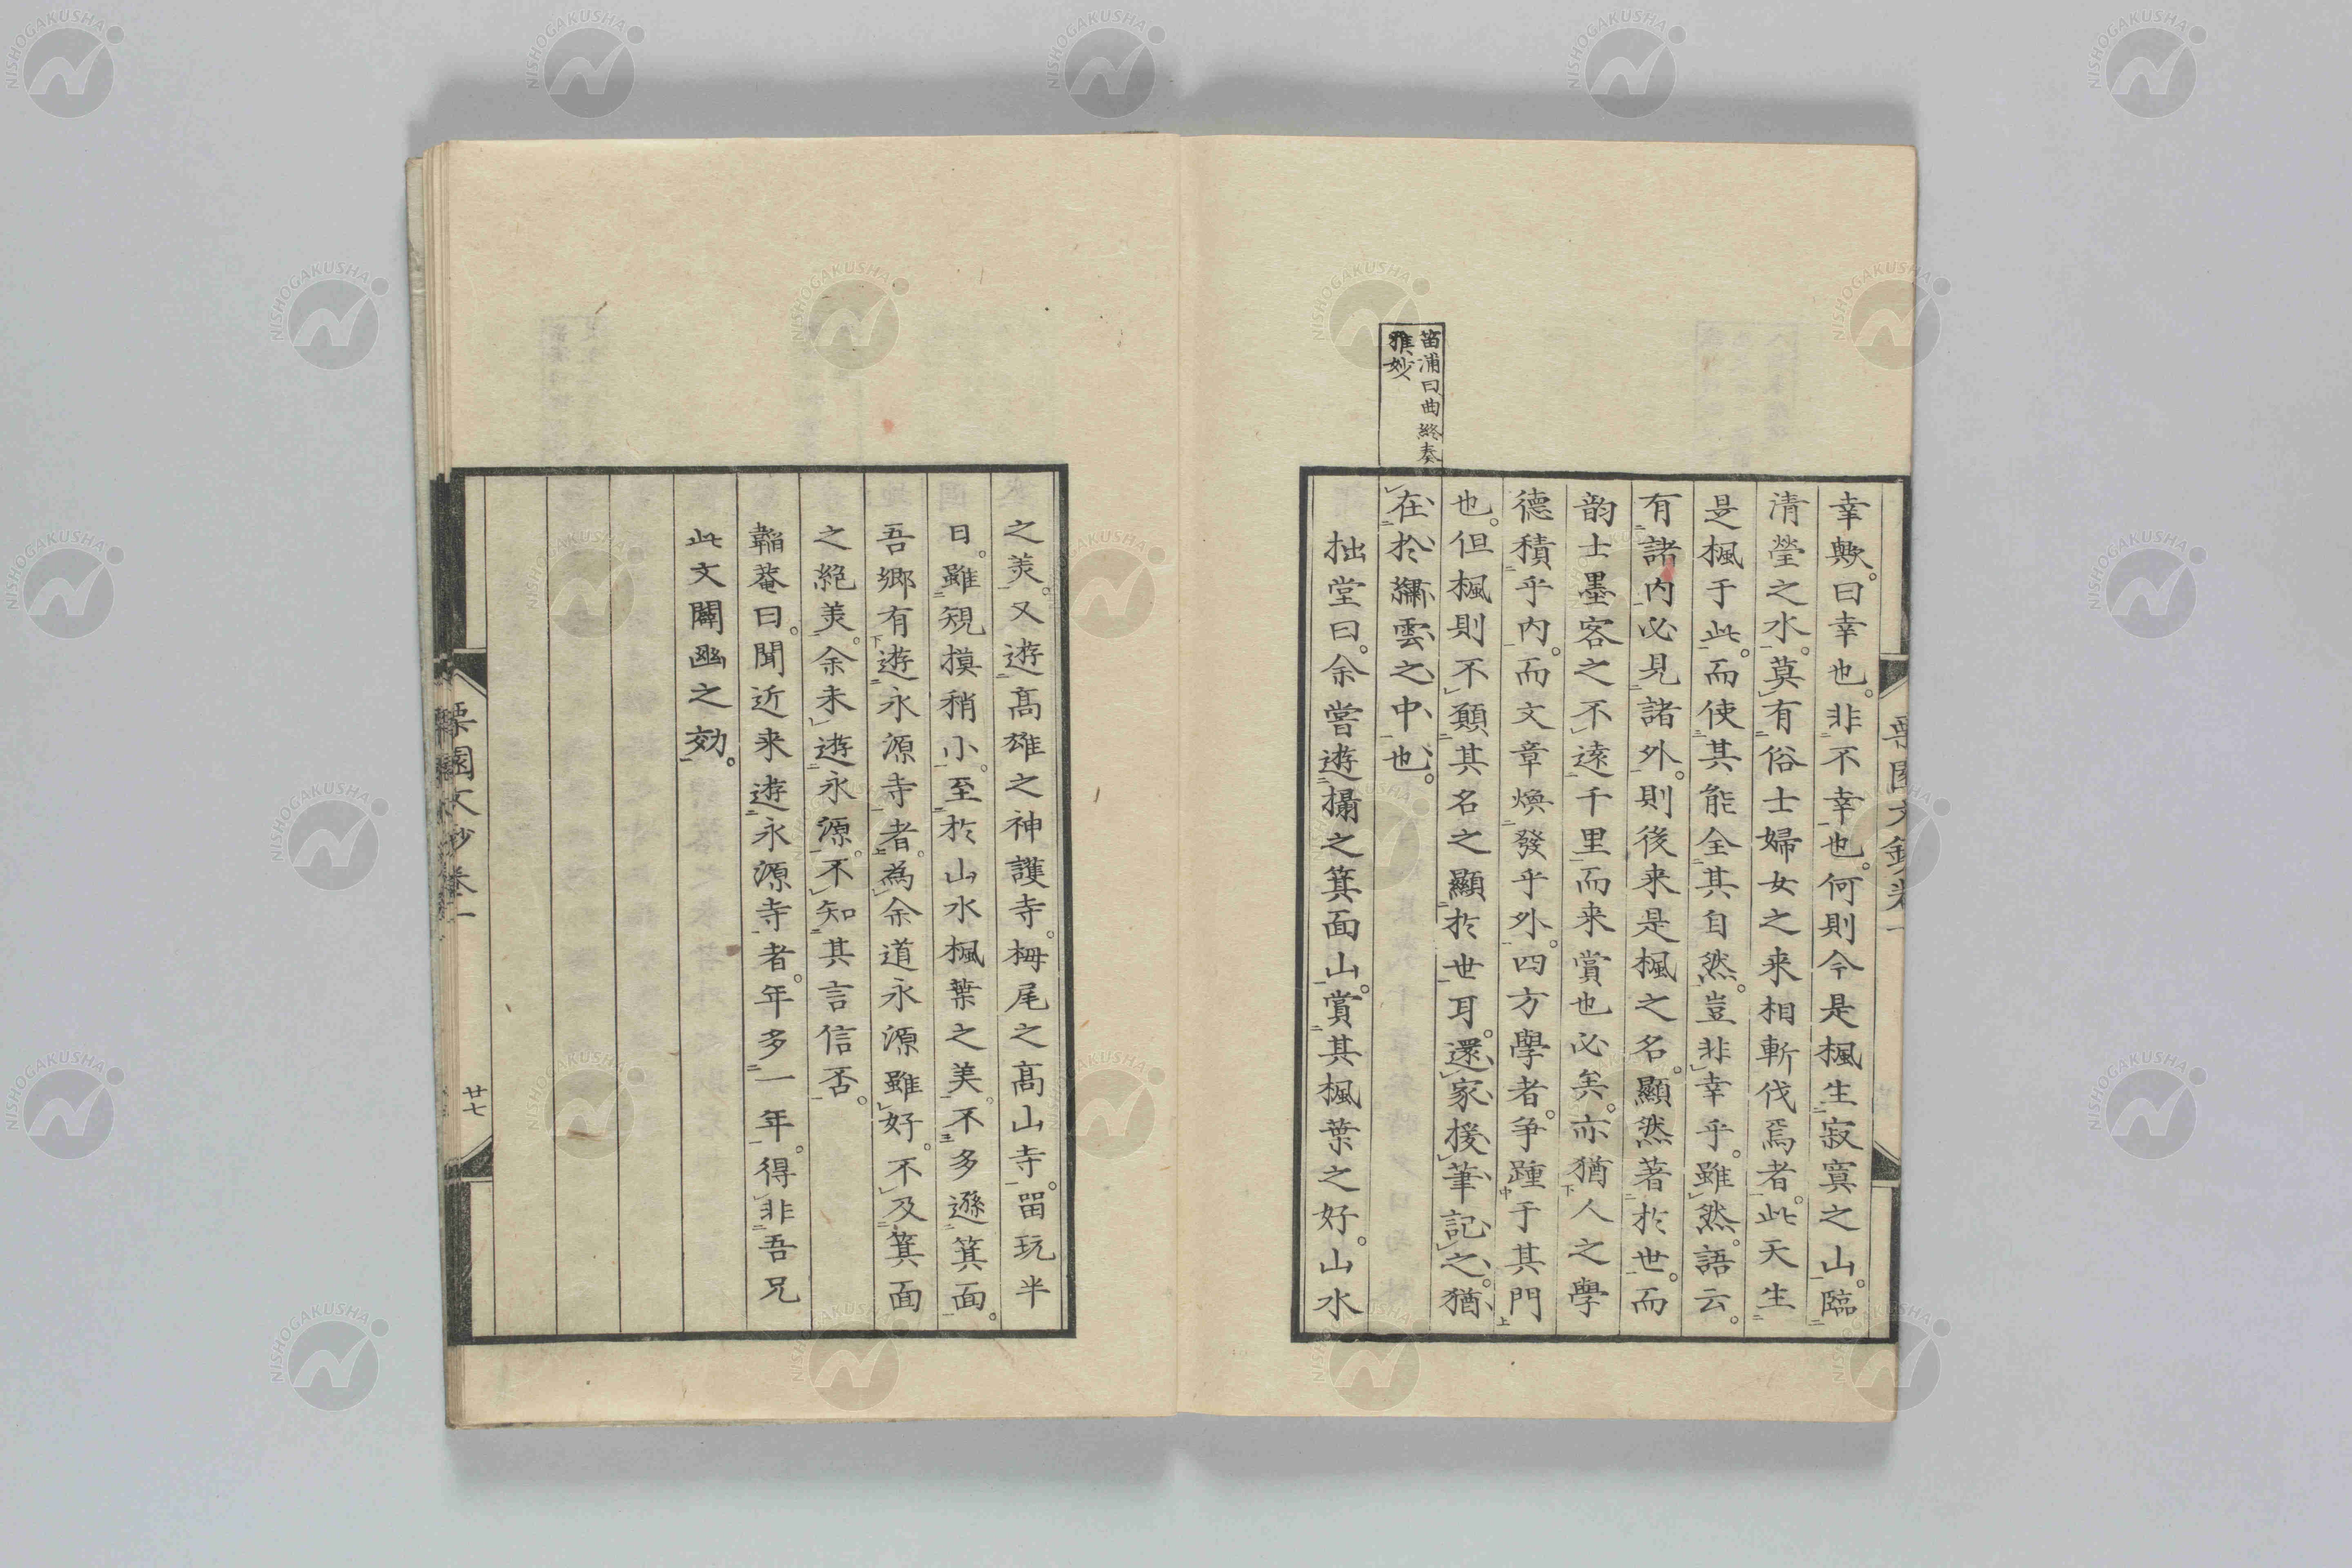 苗浦曰曲終奏
雅妙
幸歟。曰幸也。非不幸也。何則今是楓生寂寞之山。臨
清瑩之水。莫有俗士婦女之来相斬伐焉者。此天生
是楓于此。而使其能全其自然。豈非幸乎。雖然。語云。
有諸内必見諸外。則後来是楓之名。顯然著於世。而
韵士墨客之不遠千里而来賞也必矣。亦猶人之學
德積乎内。而文章煥發乎外。四方學者。争踵于其門
也。但楓則不願其名之顯於世耳。還家援筆記之。猶
在於繡雲之中也。
拙堂曰。余嘗遊攝之箕面山。賞其楓葉之好。山水
栗園文鈔卷一
之美。又遊高雄之神護寺。栂尾之高山寺。留玩半
日。雖規摸稍小。至於山水楓葉之美。不多遜箕面。
吾郷有遊永源寺者。為余道永源雖好。不及箕面
之絶美。余未遊永源。不知其言信否。
韜菴曰。聞近来遊永源寺者。年多一年。得非吾兄
此文闡幽之効。
栗園文鈔卷一
廿七
NISHOGAKUSHA